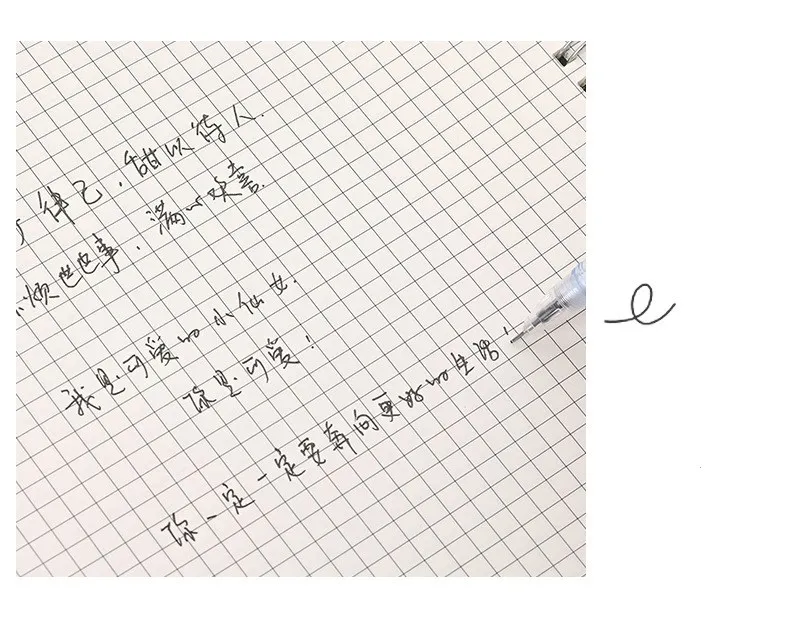 律己，甜以待人.
烦世世事，满心欢喜.
我是可爱的小仙女.
你是可爱！
你一定一定要奔向更好的生活！